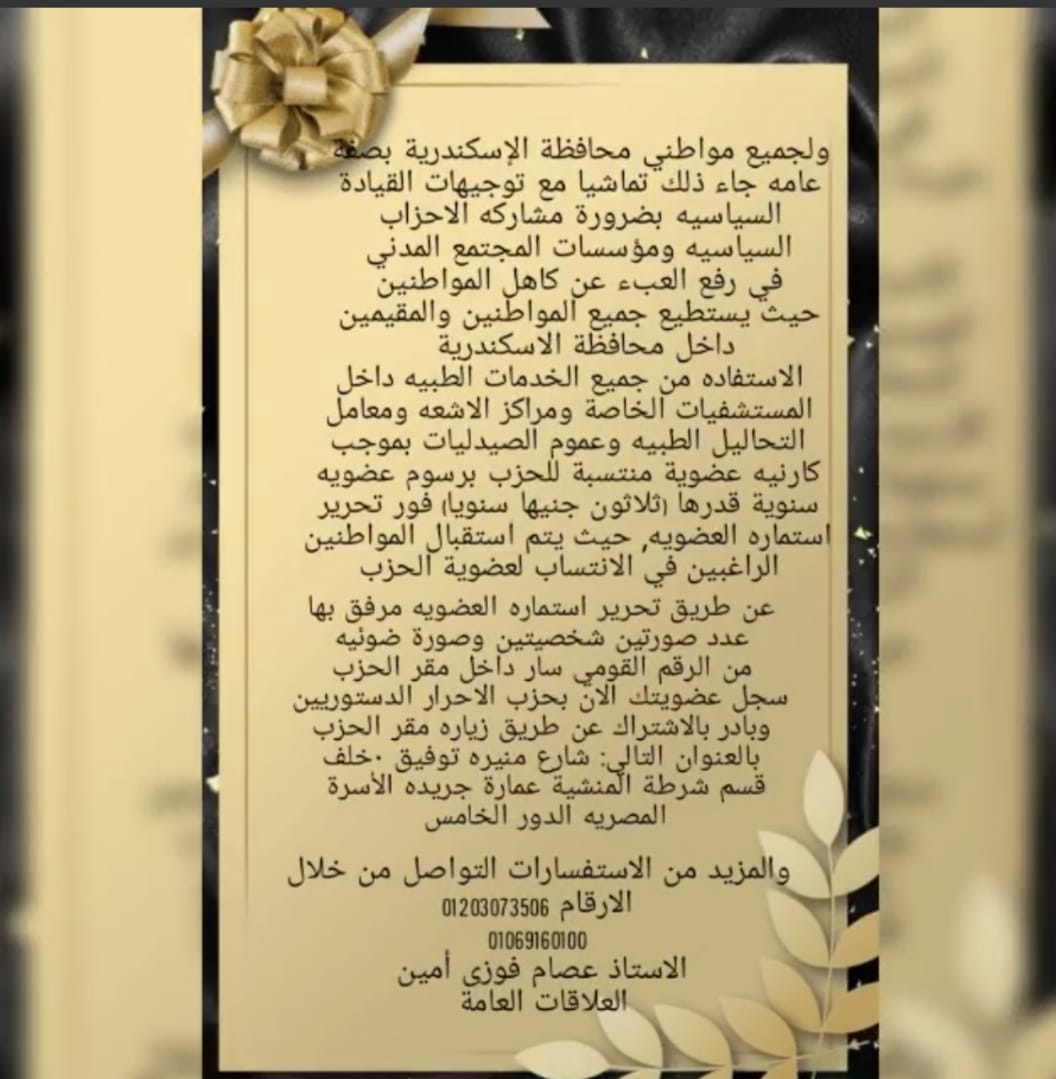 ولجميع مواطني محافظة الإسكندرية بصفة
عامه جاء ذلك تماشيا مع توجيهات القيادة
السياسيه بضرورة مشاركه الاحزاب
السياسيه ومؤسسات المجتمع المدني
في رفع العبء عن كاهل المواطنين
حيث يستطيع جميع المواطنين والمقيمين
داخل محافظة الاسكندرية
الاستفاده من جميع الخدمات الطبيه داخل
المستشفيات الخاصة ومراكز الاشعه ومعامل
التحاليل الطبيه وعموم الصيدليات بموجب
كارنيه عضوية منتسبة للحزب برسوم عضويه
سنوية قدرها (ثلاثون جنيها سنويا) فور تحرير
استماره العضويه, حيث يتم استقبال المواطنين
الراغبين في الانتساب لعضوية الحزب
عن طريق تحرير استماره العضويه مرفق بها
عدد صورتين شخصيتين وصورة ضوئيه
من الرقم القومي سار داخل مقر الحزب
سجل عضويتك الان بحزب الاحرار الدستوريين
وبادر بالاشتراك عن طريق زياره مقر الحزب
بالعنوان التالي: شارع منيره توفيق ٠خلف
قسم شرطة المنشية عمارة جريده الأسرة
المصريه الدور الخامس
والمزيد من الاستفسارات التواصل من خلال
الارقام 01203073506
01069160100
الاستاذ عصام فوزى أمين
العلاقات العامة